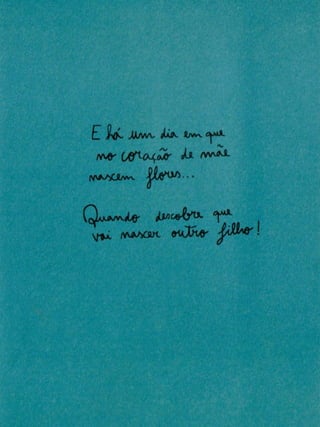 E há um dia em que
no coração de mãe
nascem flores...
Quando descobre que
vai nascer outro filho!